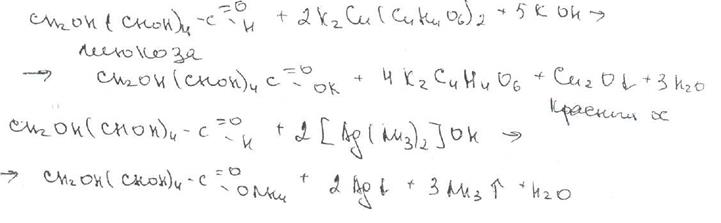 CH2OH(CHOH)4-C=O-H + 2K2Cu(C4H4O6)2 + 5KOH →
глюкоза
→ CH2OH(CHOH)4 C=O-OK + 4K2C4H4O6 + Cu2O↓ + 3H2O
красный
CH2OH(CHOH)4-C=O-H + 2[Ag(NH3)2]OH →
→ CH2OH(CHOH)4-C=O-ONH4 + 2Ag↓ + 3NH3↑ + H2O